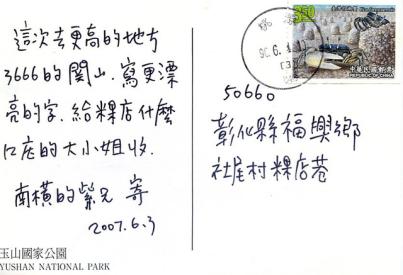 這次去更高的地方
3666的關山.寫更漂
亮的字.給粿店什麼
口店的大小姐收.
南橫的紫兄 寄
2007.6.3
玉山國家公園
YUSHAN NATIONAL PARK
350
REPUBLIC OF CHINA
50660
彰化縣福興鄉
社尾村粿店巷